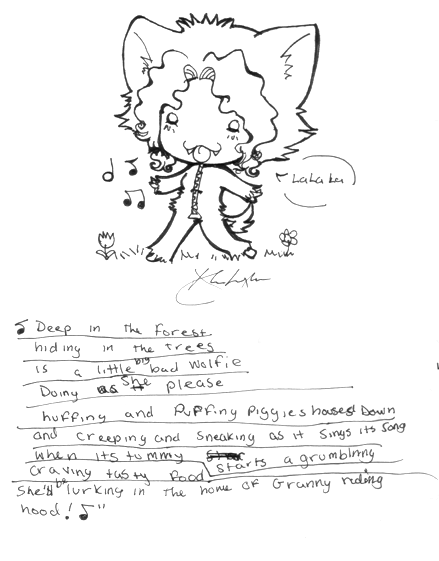 LaLaLa
Deep in the forest
hiding in the trees
is a little big bad wolfie
Doing as she please
huffing and Puffing Piggies houses Down
and creeping and sneaking as it sings its song
when its tummy starts a grumbling
craving tasty food
She'll be lurking in the home of Granny riding
hood!"